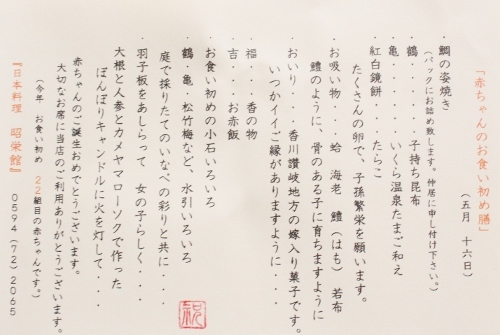 「赤ちゃんのお食い初め膳」
(五月 十六日)
・鯛の姿焼き
(パックにお詰め致します。仲居に申し付け下さい。)
・鶴・・・・・子持ち昆布
・亀・・・・・いくら温泉たまご和え
・紅白鏡餅・・・・・たらこ
たくさんの卵で、子孫繁栄を願います。
・お吸い物・・・蛤 海老 鱧(はも) 若布
鱧のように、骨のある子に育ちますように
・おいり・・・香川讃岐地方の嫁入り菓子です。
いつかイイご縁がありますように・・・
・福・・・香の物
・吉・・・お赤飯
・お食い初めの小石いろいろ
・鶴・亀・松竹梅など、水引いろいろ
庭で採りたてのいなべの彩りと共に・・・
・羽子板をあしらって 女の子らしく・・・
大根と人参とカメヤマローソクで作った
ぼんぼりキャンドルに火を灯して・・・
赤ちゃんのご誕生おめでとうございます。
大切なお席に当店のご利用ありがとうございます。
(今年 お食い初め 22組目の赤ちゃんです。)
『日本料理 昭栄館』 0594(72)2065
祝